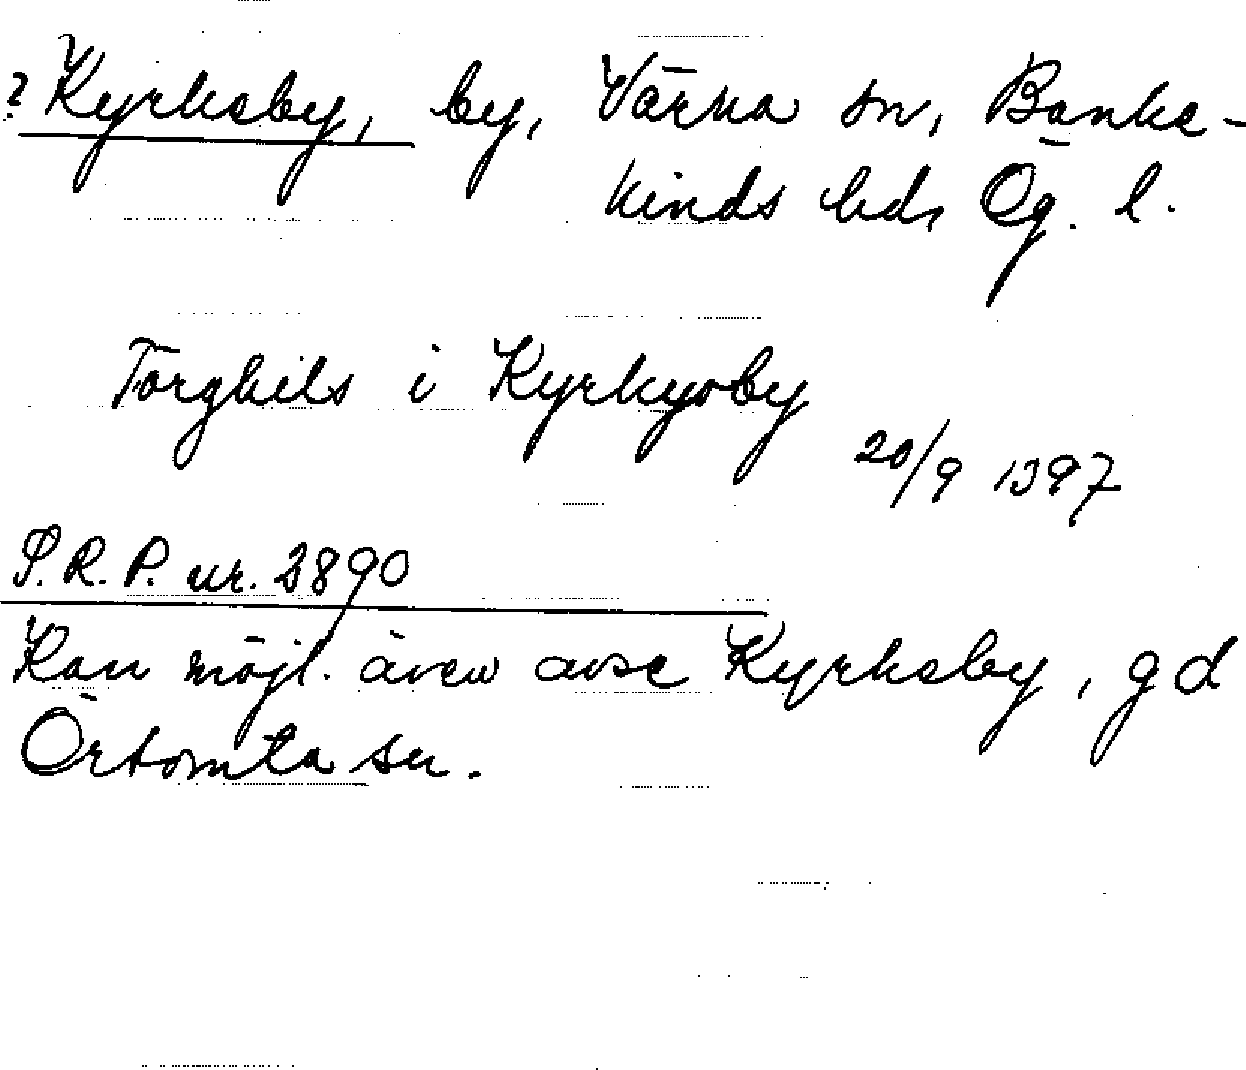 ? Kyrkeby, by, Värna sn, Banke-
kinds hd, Ög. l.
Torghils i Kyrkyoby
20/9 1397
S.R.P. nr. 2890
Kan möjl. även avse Kyrkeby, gd
Örtomta sn.